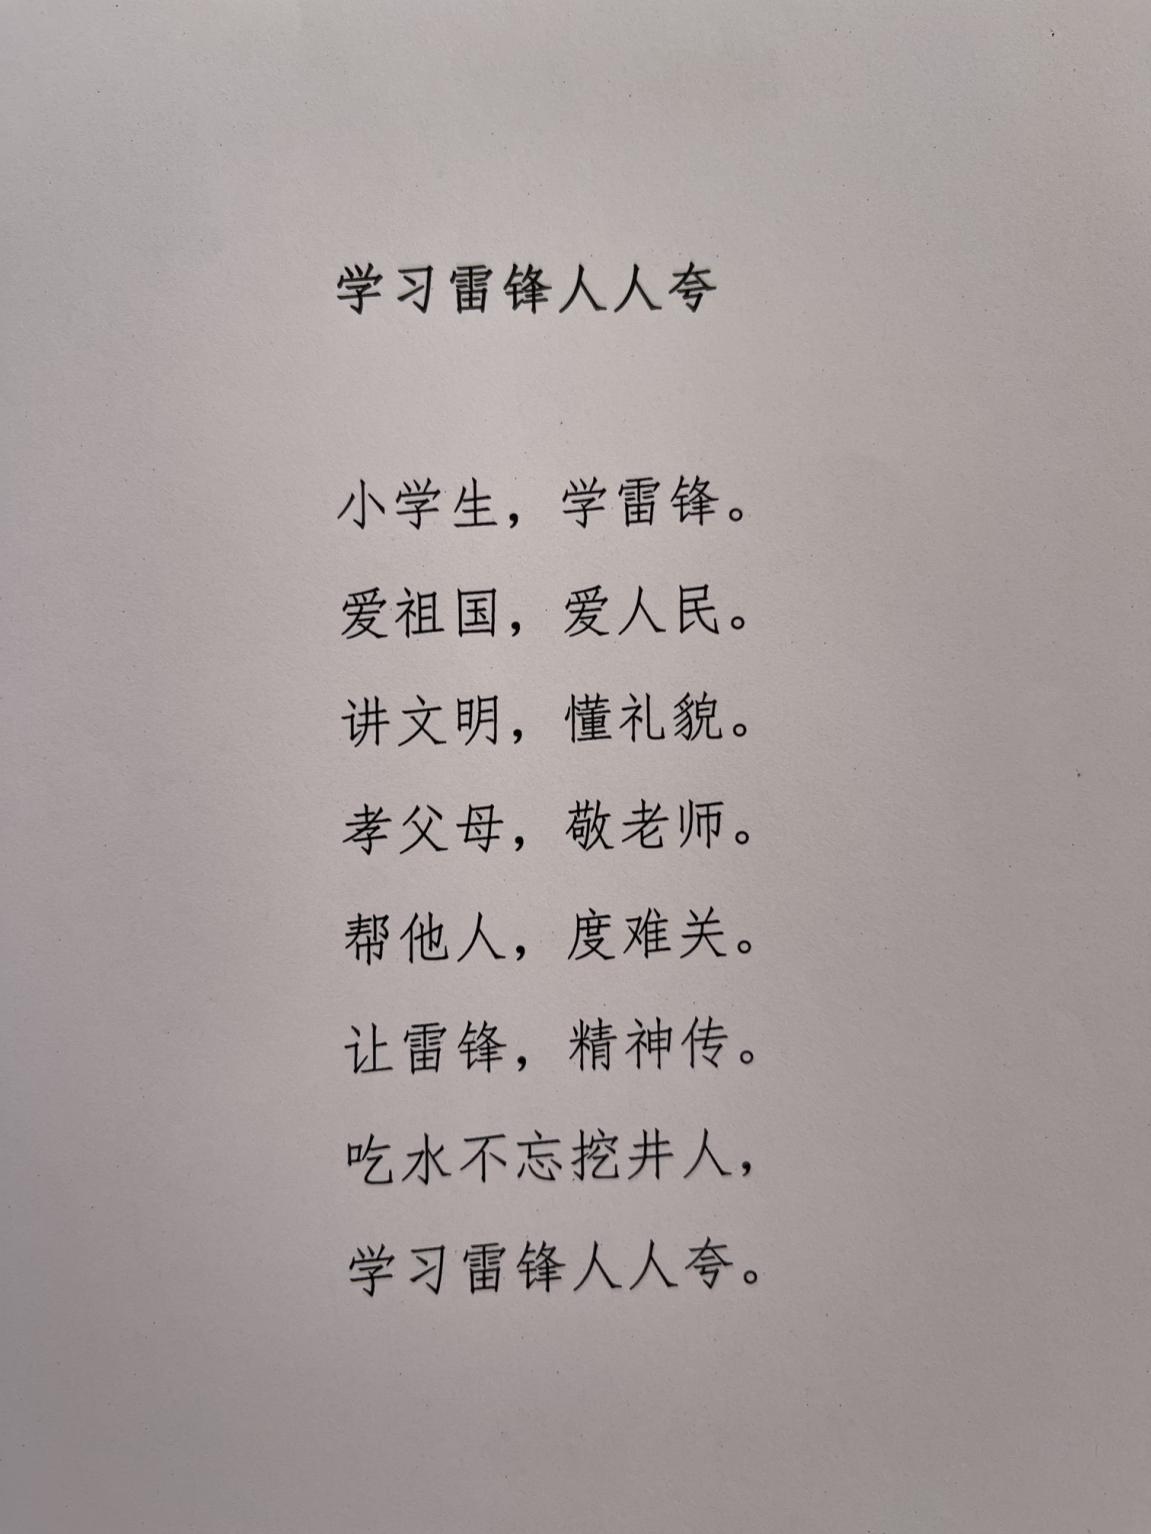 学习雷锋人人夸
小学生，学雷锋。
爱祖国，爱人民。
讲文明，懂礼貌。
孝父母，敬老师。
帮他人，度难关。
让雷锋，精神传。
吃水不忘挖井人，
学习雷锋人人夸。